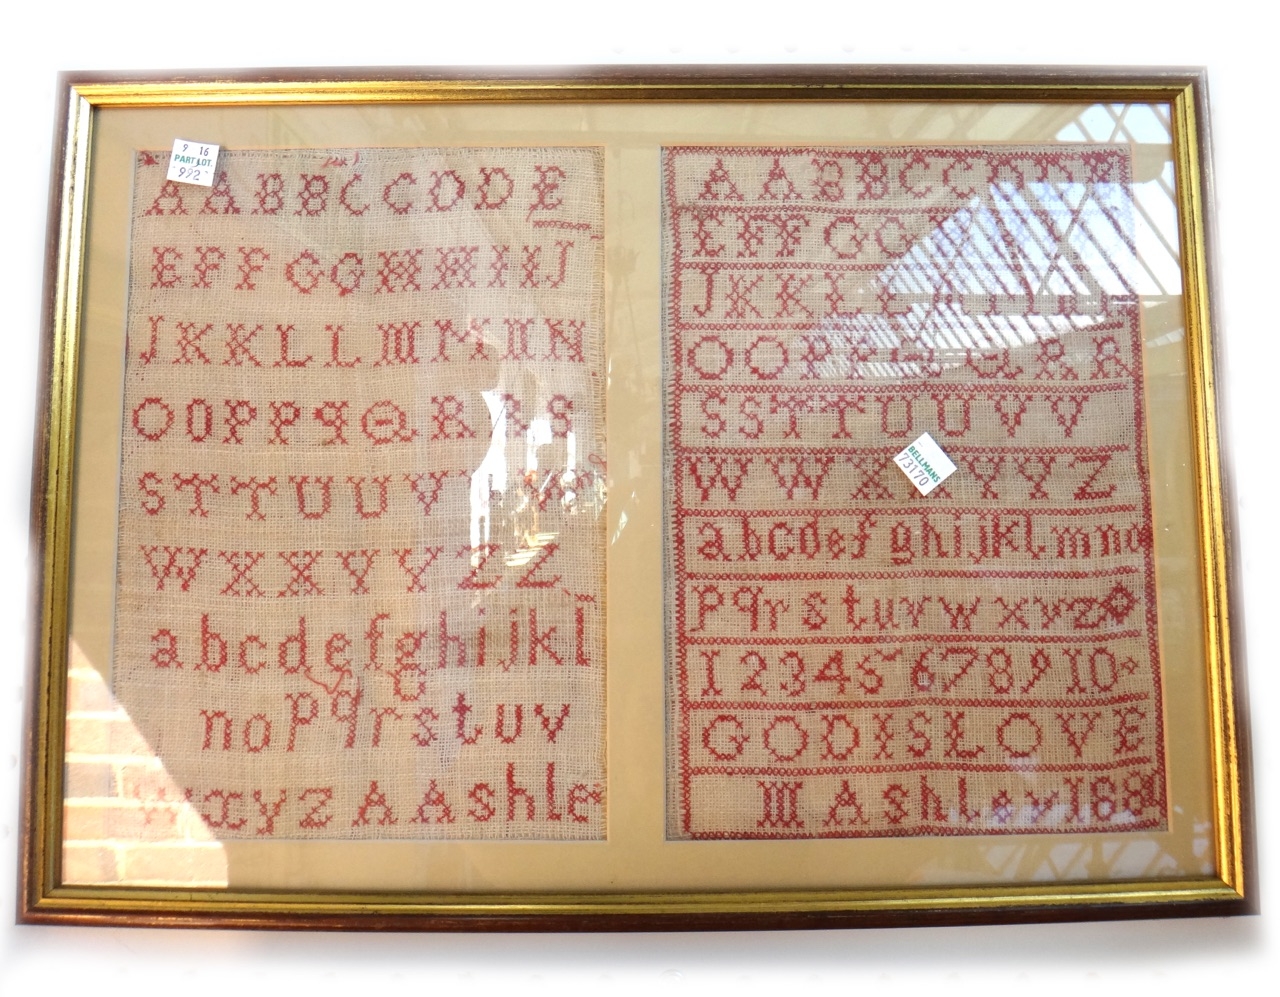 9 16
PART LOT.
992
A A B B C C D D E
E F F G G H H I I J
J K K L L M M N N
O O P P q Q R R S
S T T U U V
W X X Y Y Z Z
a b c d e f g h i j k l
n o p q r s t u v
w x y z A Ashle
A A B B C C D D E
E F F G G
J K K L L
O O P P Q Q R R
S S T T U U V V
W W X X Y Y Z
a b c d e f g h i j k l m n o
p q r s t u v w x y z
1 2 3 4 5 6 7 8 9 10
GOD IS LOVE
M Ashley 168
BELLMANS
73170